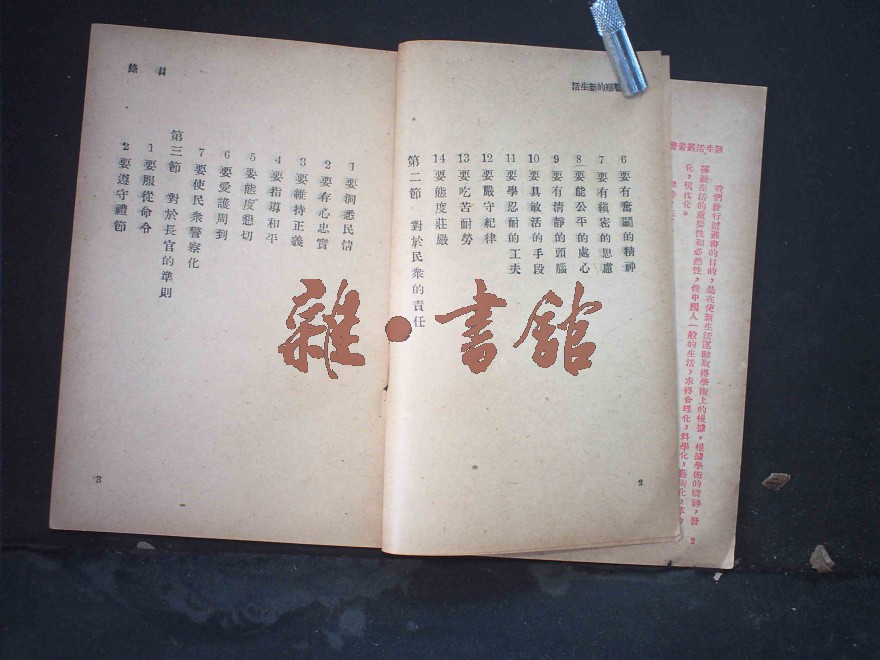 的新生活
6 要有奮鬭的精神
7 要有縝密的思慮
8 要能公平的處心
9 要有清靜的頭腦
10 要具敏活的手段
11 要學忍耐的工夫
12 要嚴守紀律
13 要吃苦耐勞
14 要態度莊嚴
第二節 對於民衆的責任
2
目錄
1 要洞悉民情
2 要存心忠實
3 要維持正義
4 要指導和平
5 要態度懇切
6 要愛護周到
7 要使民衆警察化
第三節 對於長官的準則
1 要服從命令
2 要遵守禮節
3
新生活叢書發
我們發行這叢書的目的，是在使新生活運動取得學術上的根據，根據學術的精神，發
揮新生活的重要性和必然性，使中國人一般的生活，求得合理化，科學化，藝術化，
化，現代化。
2
雜·書館